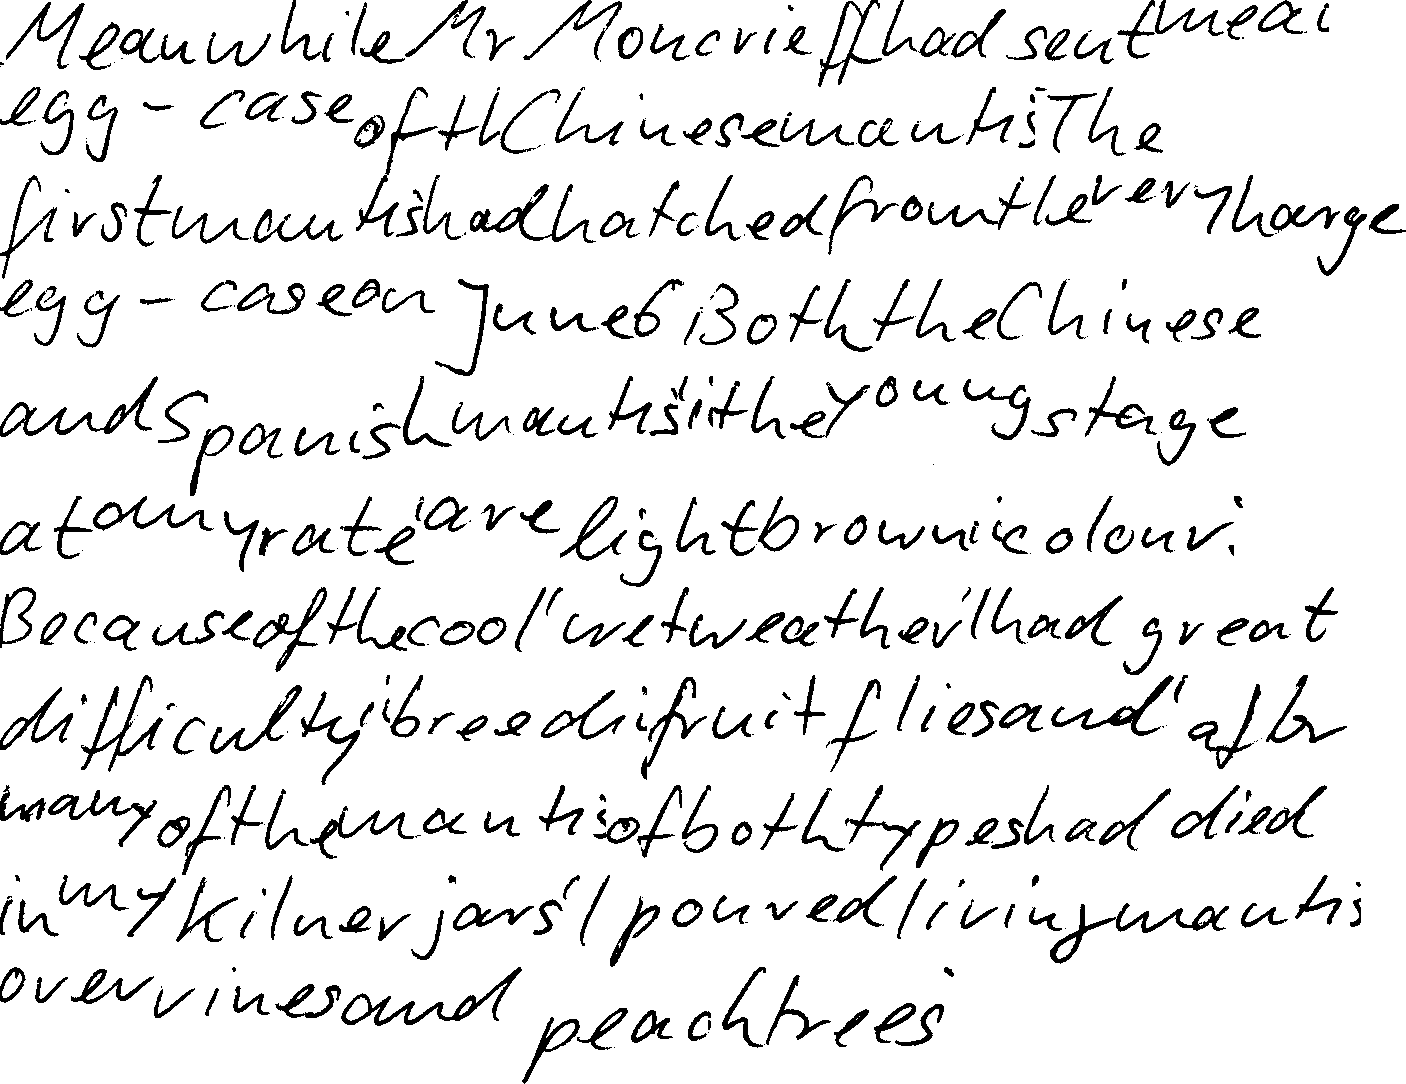 Meanwhile Mr Moncrieff had sent me an
egg - case of th Chinese mantis The
first mantis had hatched from the very large
egg - case on June 6 Both the Chinese
and Spanish mantis i the young stage
at any rate are light brown i colour.
Because of the cool wet weather I had great
difficulty i breedi fruit flies and after
many of the mantis of both types had died
in my Kilner jars I poured living mantis
over vines and peach trees